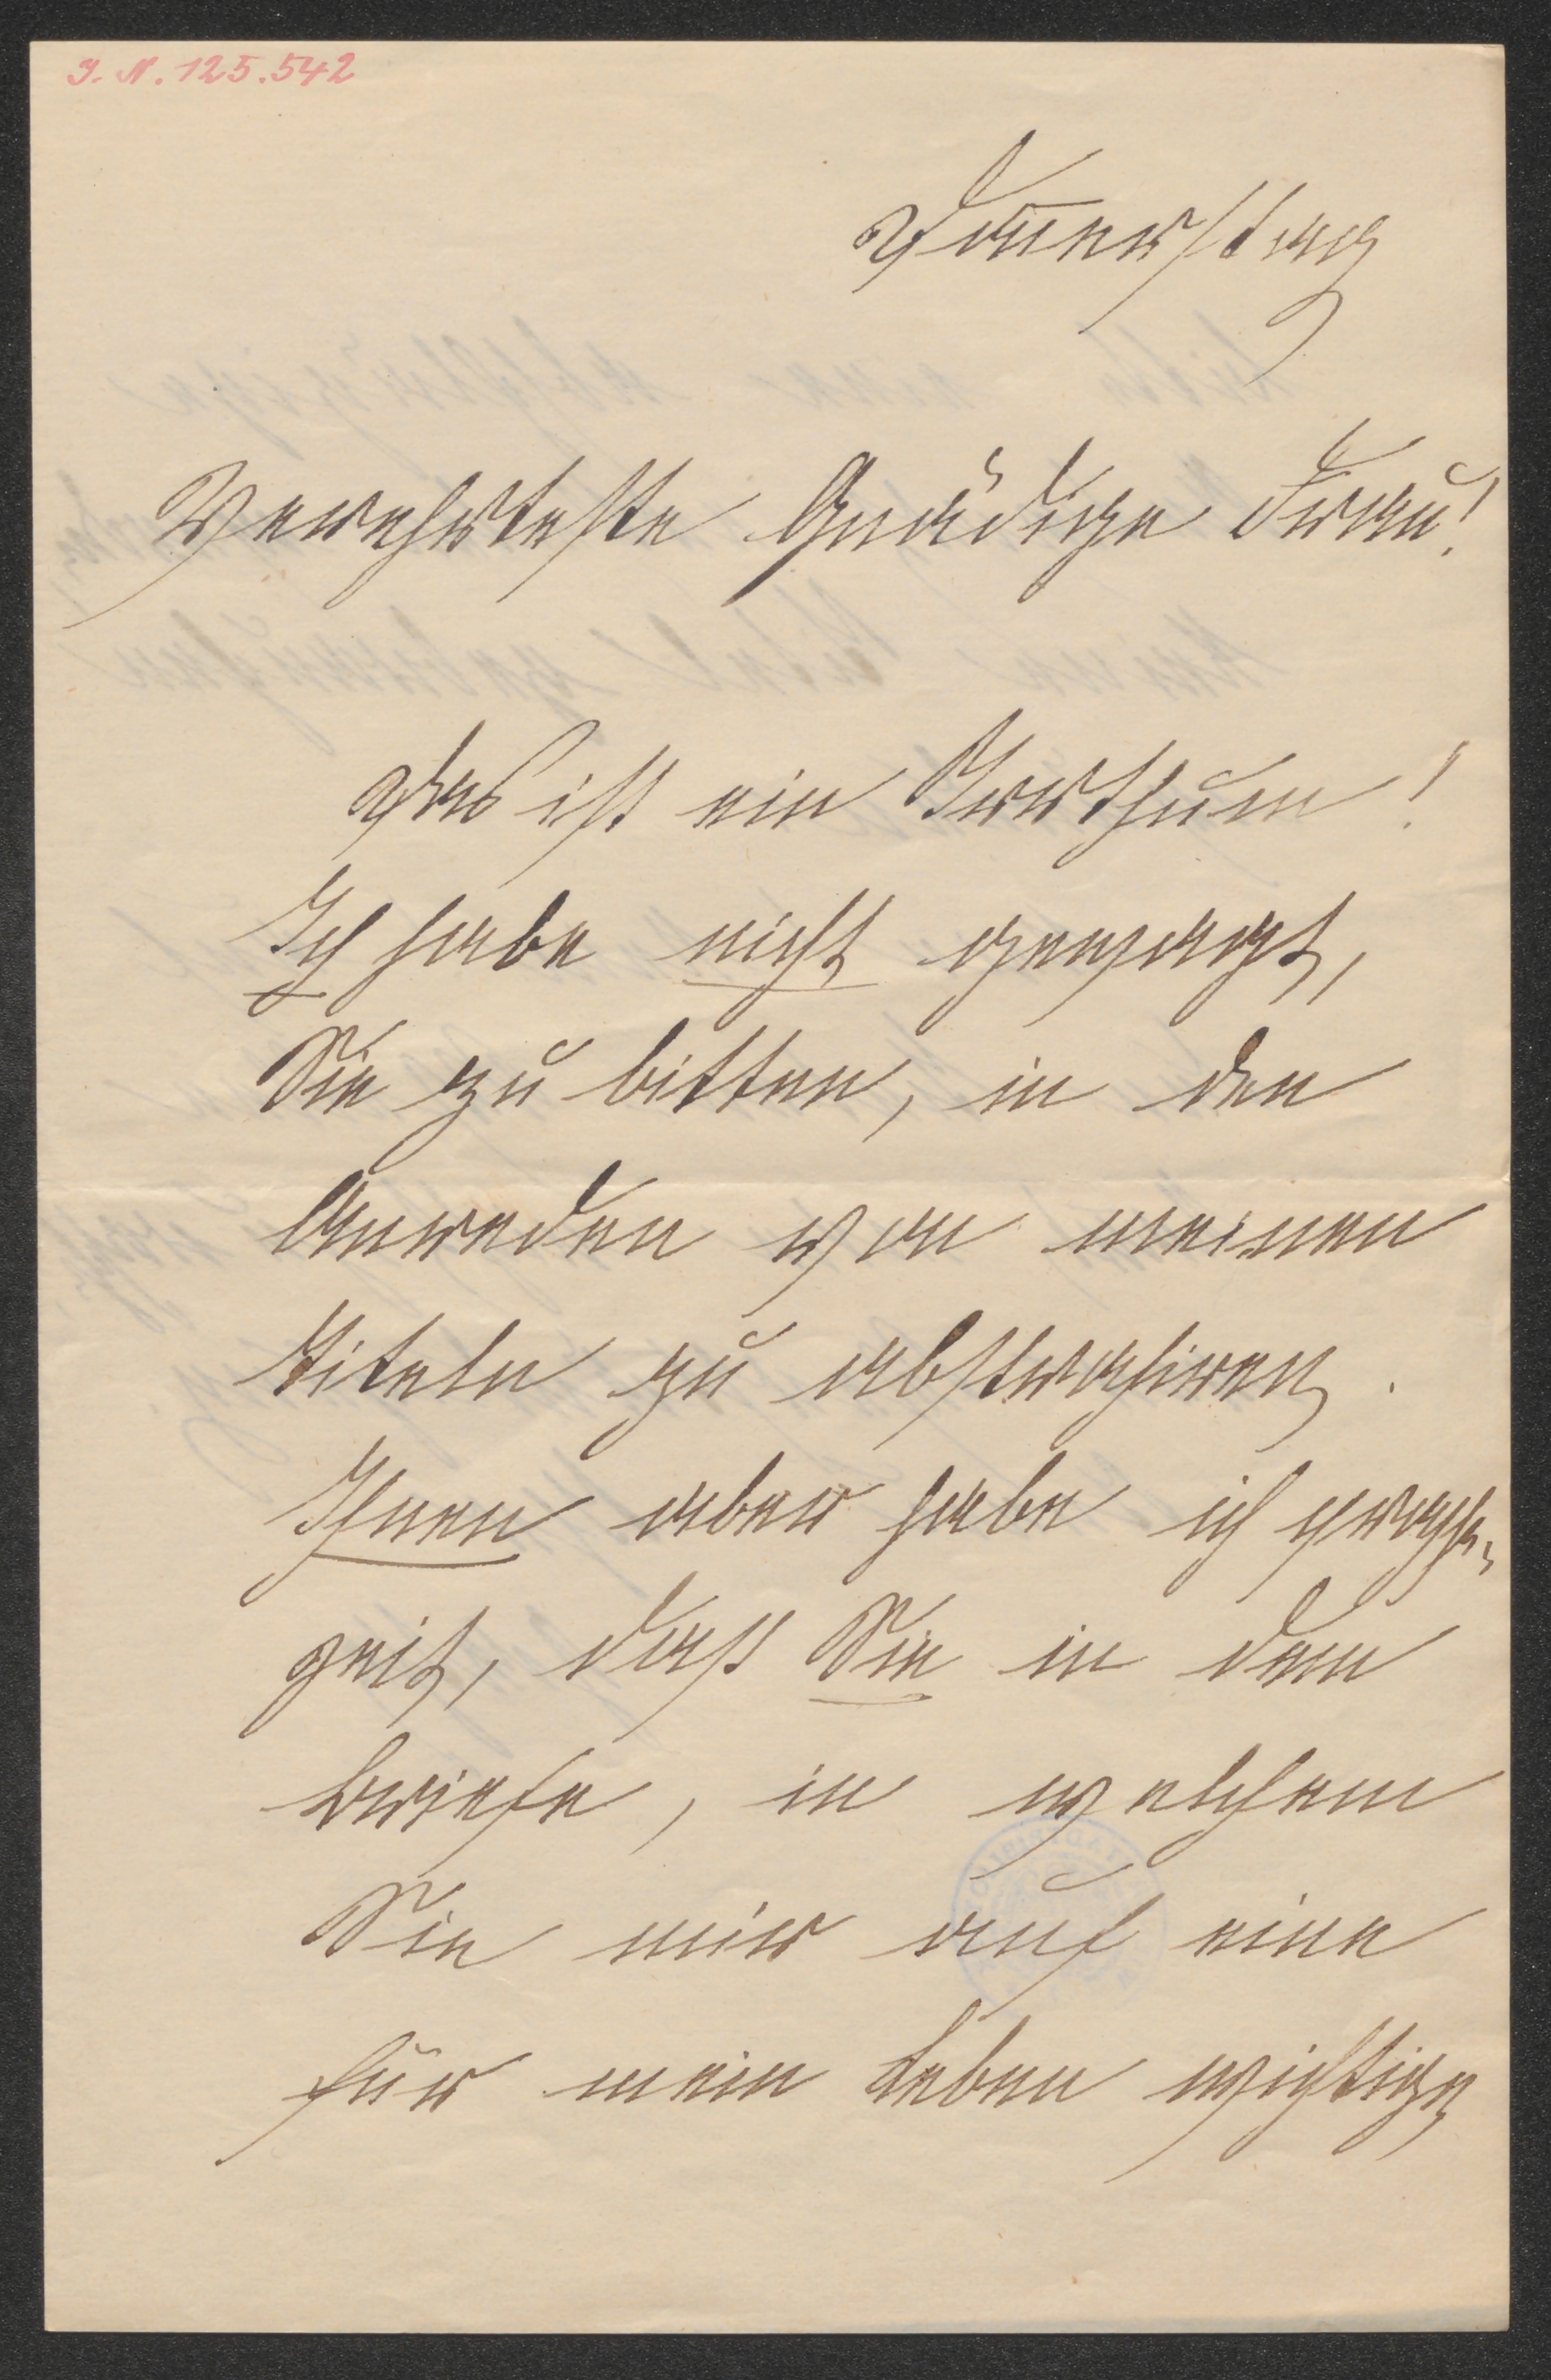 I. N. 125.542
Donnerstag
Verehrteste Gnädige Frau!
Das ist ein Irrthum!
Ich habe nicht gewagt,
Sie zu bitten, in den
Anreden von meinen
Titeln zu abstrahiren.
Ihnen aber habe ich
zeiht, dass Sie in dem
Briefe, in welchem
Sie mir auf eine
für mein Leben wichtige